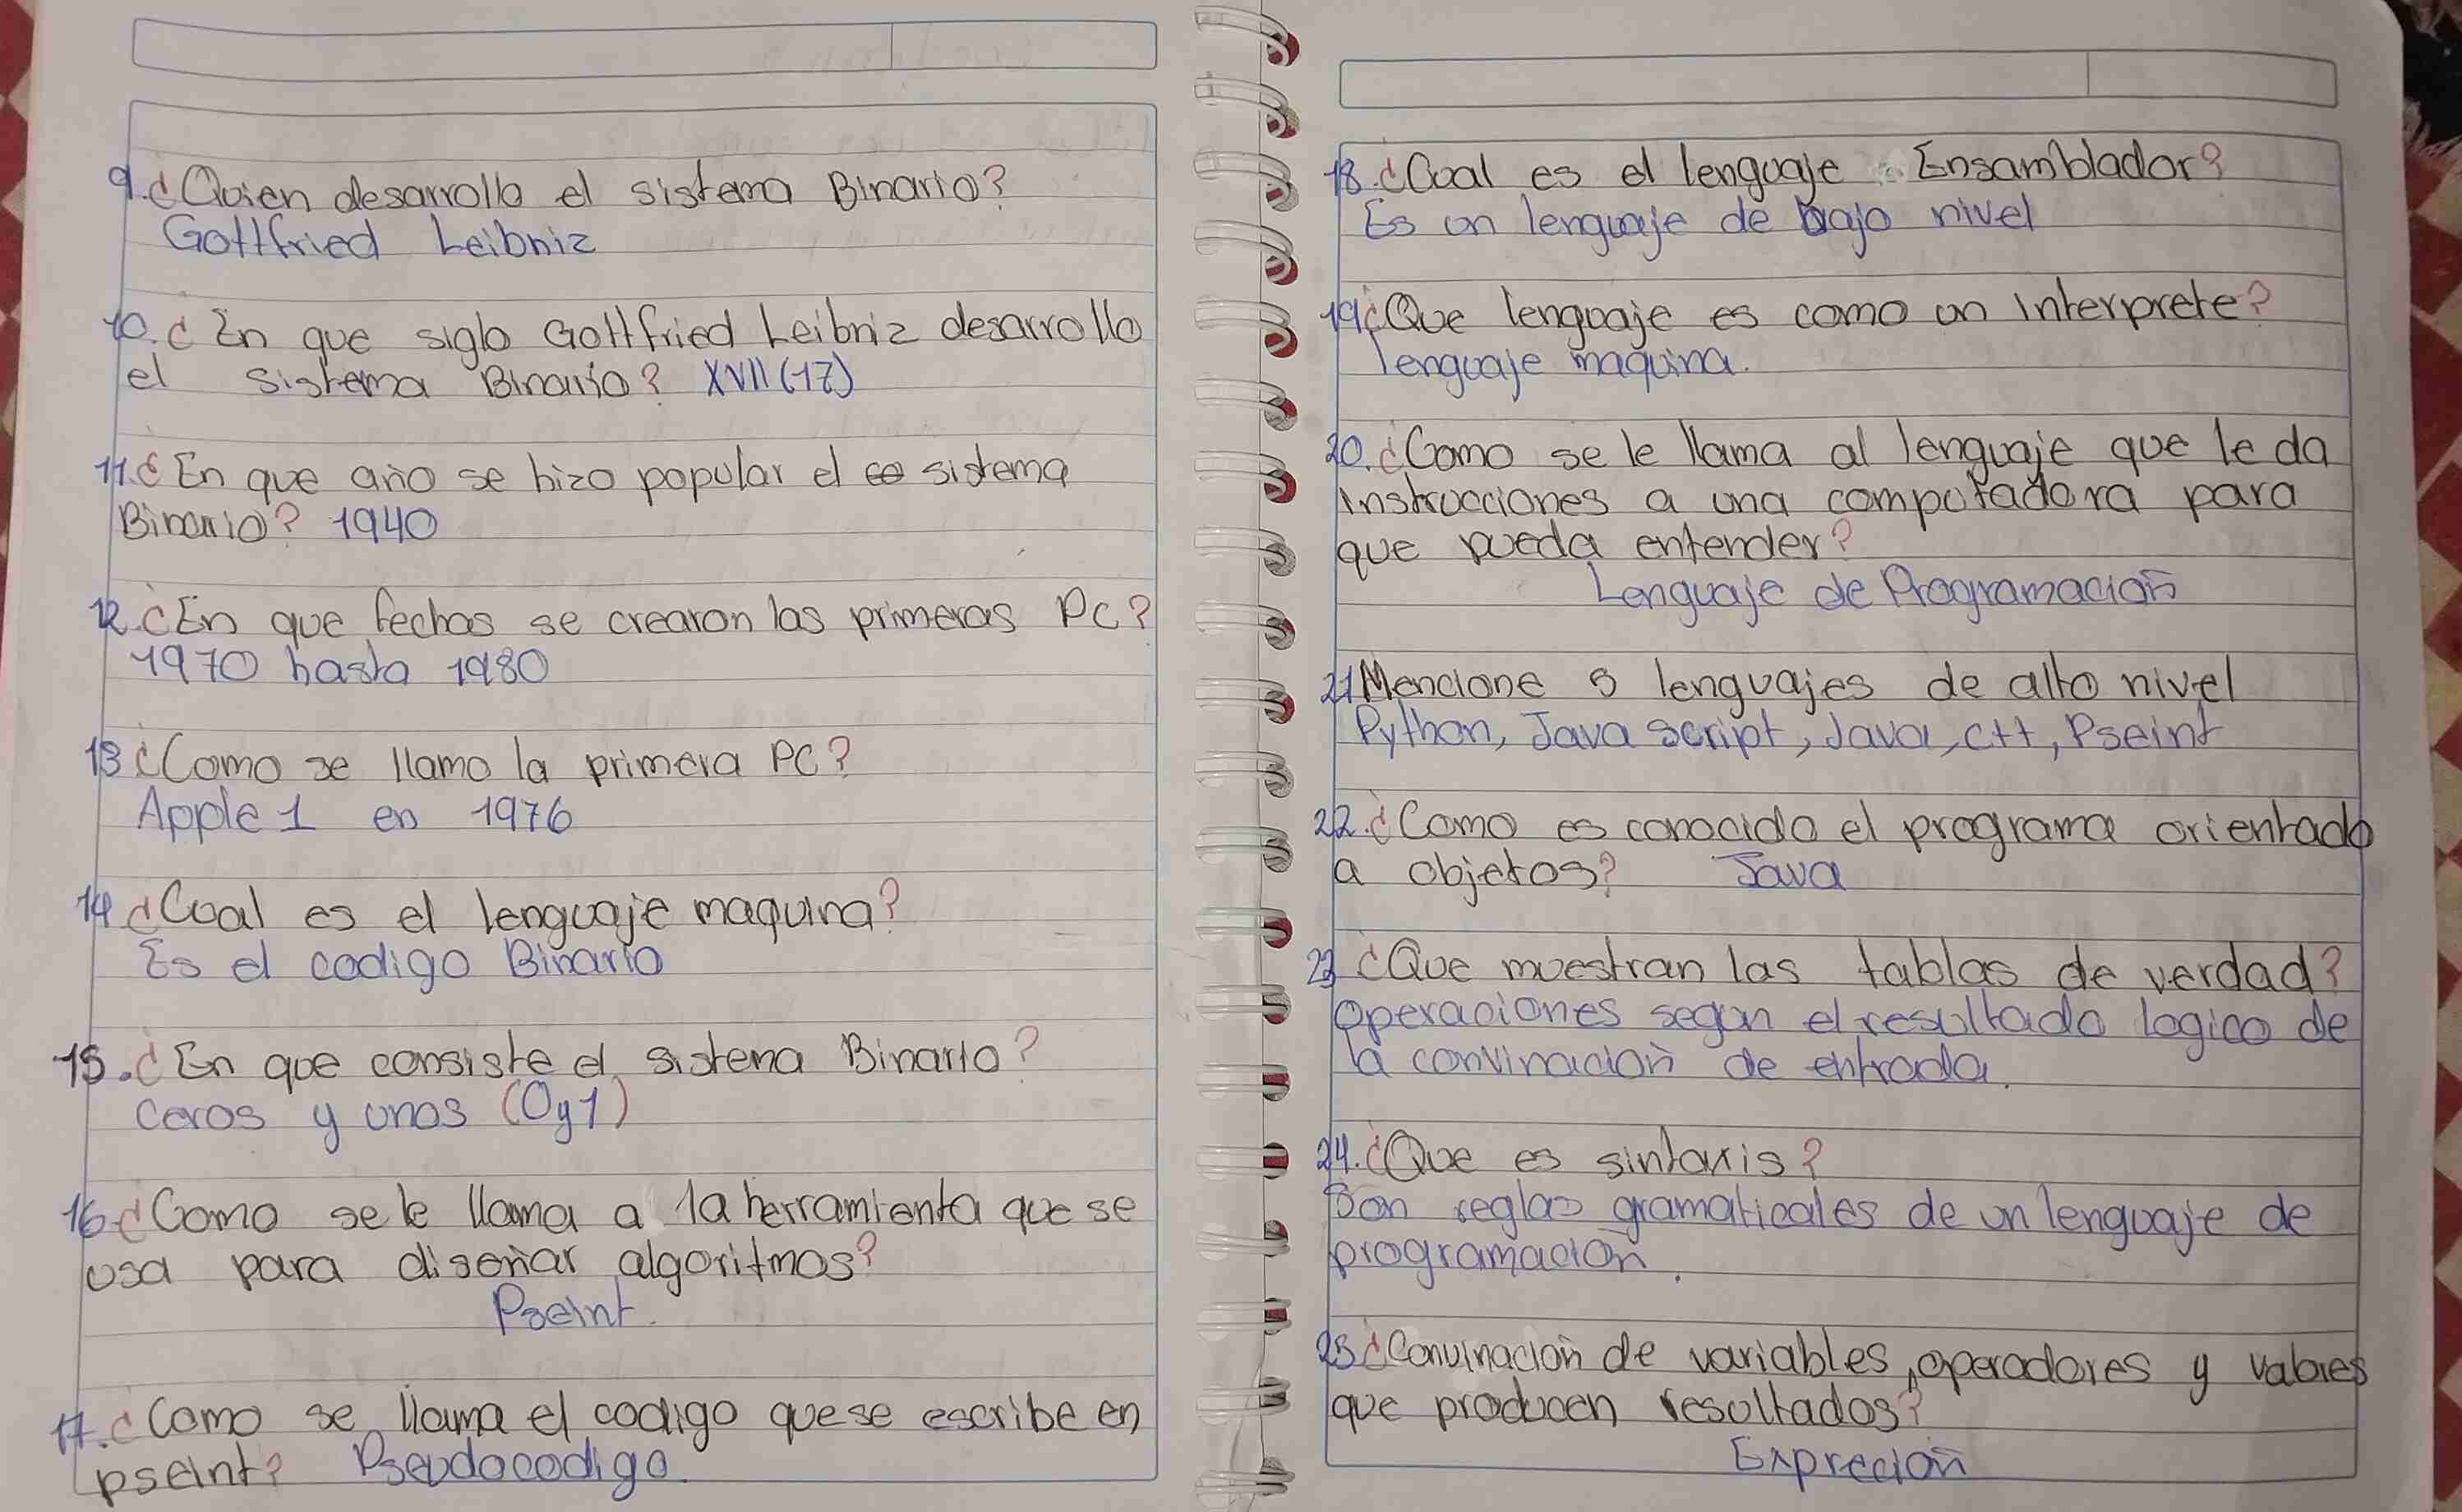 9. ¿Quien desarrollo el sistema Binario?
Gottfried Leibniz
10. ¿En que siglo Gottfried Leibniz desarrollo
el sistema Binario? XVII (17)
11. ¿En que año se hizo popular el sistema
Binario? 1940
12. ¿En que fechas se crearon las primeras PC?
1970 hasta 1980
13 ¿Como se llamo la primera PC?
Apple 1 en 1976
14 ¿Cual es el lenguaje maquina?
Es el codigo Binario
15. ¿En que consiste el sistema Binario?
Ceros y unos (0 y 1)
16 ¿Como se le llama a la herramienta que se
usa para diseñar algoritmos?
Pseint.
17. ¿Como se llama el codigo que se escribe en
pseint? Pseudocodigo.
18. ¿Cual es el lenguaje Ensamblador?
Es un lenguaje de bajo nivel
19 ¿Que lenguaje es como un interprete?
lenguaje maquina.
20. ¿Como se le llama al lenguaje que le da
instrucciones a una computadora para
que pueda entender?
Lenguaje de Programación
21 Mencione 5 lenguajes de alto nivel
Python, Java script, Java, C++, Pseint
22. ¿Como es conocido el programa orientado
a objetos? Java
23 ¿Que muestran las tablas de verdad?
Operaciones segun el resultado logico de
la convinación de entrada.
24. ¿Que es sintaxis?
Son reglas gramaticales de un lenguaje de
programacion.
25 ¿Convinación de variables, operadores y valores
que producen resultados?
Expreción